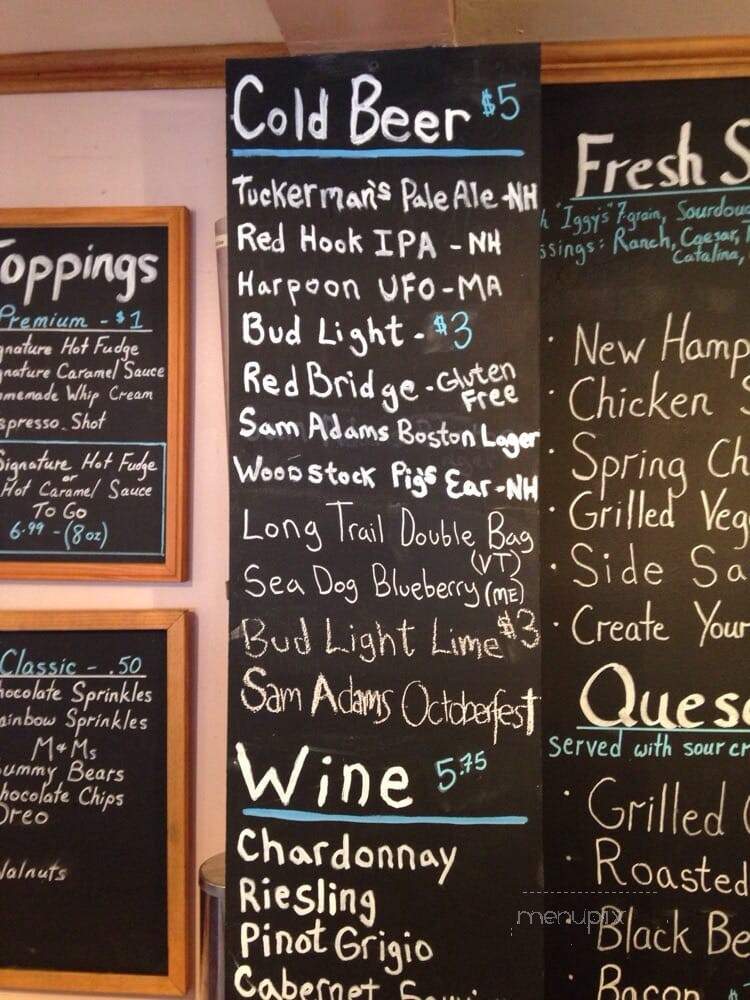 Cold Beer $5
Tuckerman's Pale Ale - NH
Red Hook IPA - NH
Harpoon UFO - MA
Bud Light - $3
Red Bridge - Gluten
Free
Sam Adams Boston Lager
Woodstock Pigs Ear - NH
Long Trail Double Bag
(VT)
Sea Dog Blueberry (ME)
Bud Light Lime $3
Sam Adams Octoberfest
Wine 5.75
Chardonnay
Riesling
Pinot Grigio
Cabernet
oppings
Premium - $1
gnature Hot Fudge
gnature Caramel Sauce
memade Whip Cream
spresso Shot
Signature Hot Fudge
or
Hot Caramel Sauce
To Go
6.99 - (8oz)
Classic - .50
hocolate Sprinkles
ainbow Sprinkles
M&Ms
ummy Bears
hocolate Chips
Oreo
Walnuts
Fresh S
h "Iggy's" 7-grain, Sourdou
ssings: Ranch, Caesar,
Catalina,
· New Hamp
· Chicken
· Spring Ch
· Grilled Veg
· Side Sa
· Create Your
Quesa
served with sour cr
· Grilled
· Roasted
· Black Be
· Bacon
menupix